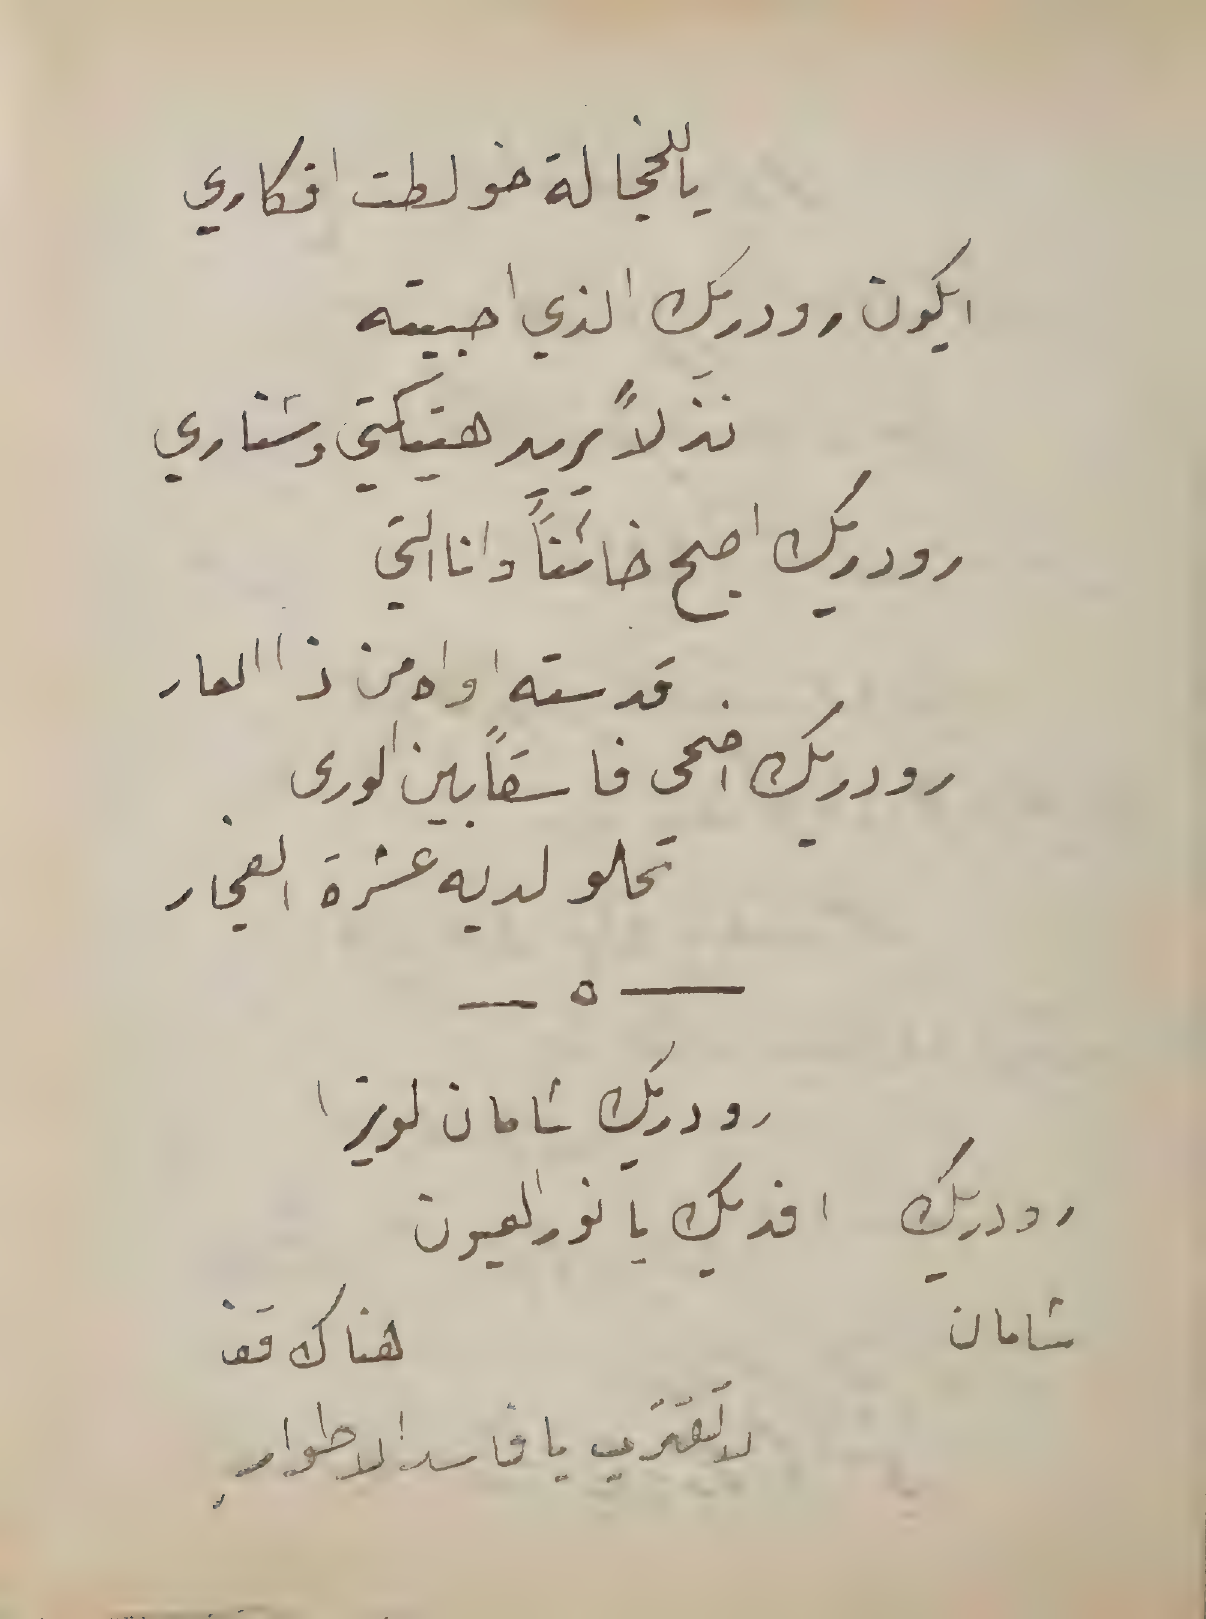 ياللخجالة خولطت افكاري
ايكون رودريك الذي احببته
نذلاً يريد هتيكتي وشناري
رودريك اصبح خائناً وانا التي
قدسته اواه من ذا العار
رودريك اضحى فاسقاً بين الورى
تحلو لديه عشرة الفجار
— ه —
رودريك شامان لويزا
رودريك افديك يا نور العيون
شامان هناك قف
لا تقترب يا فاسد الاطوار